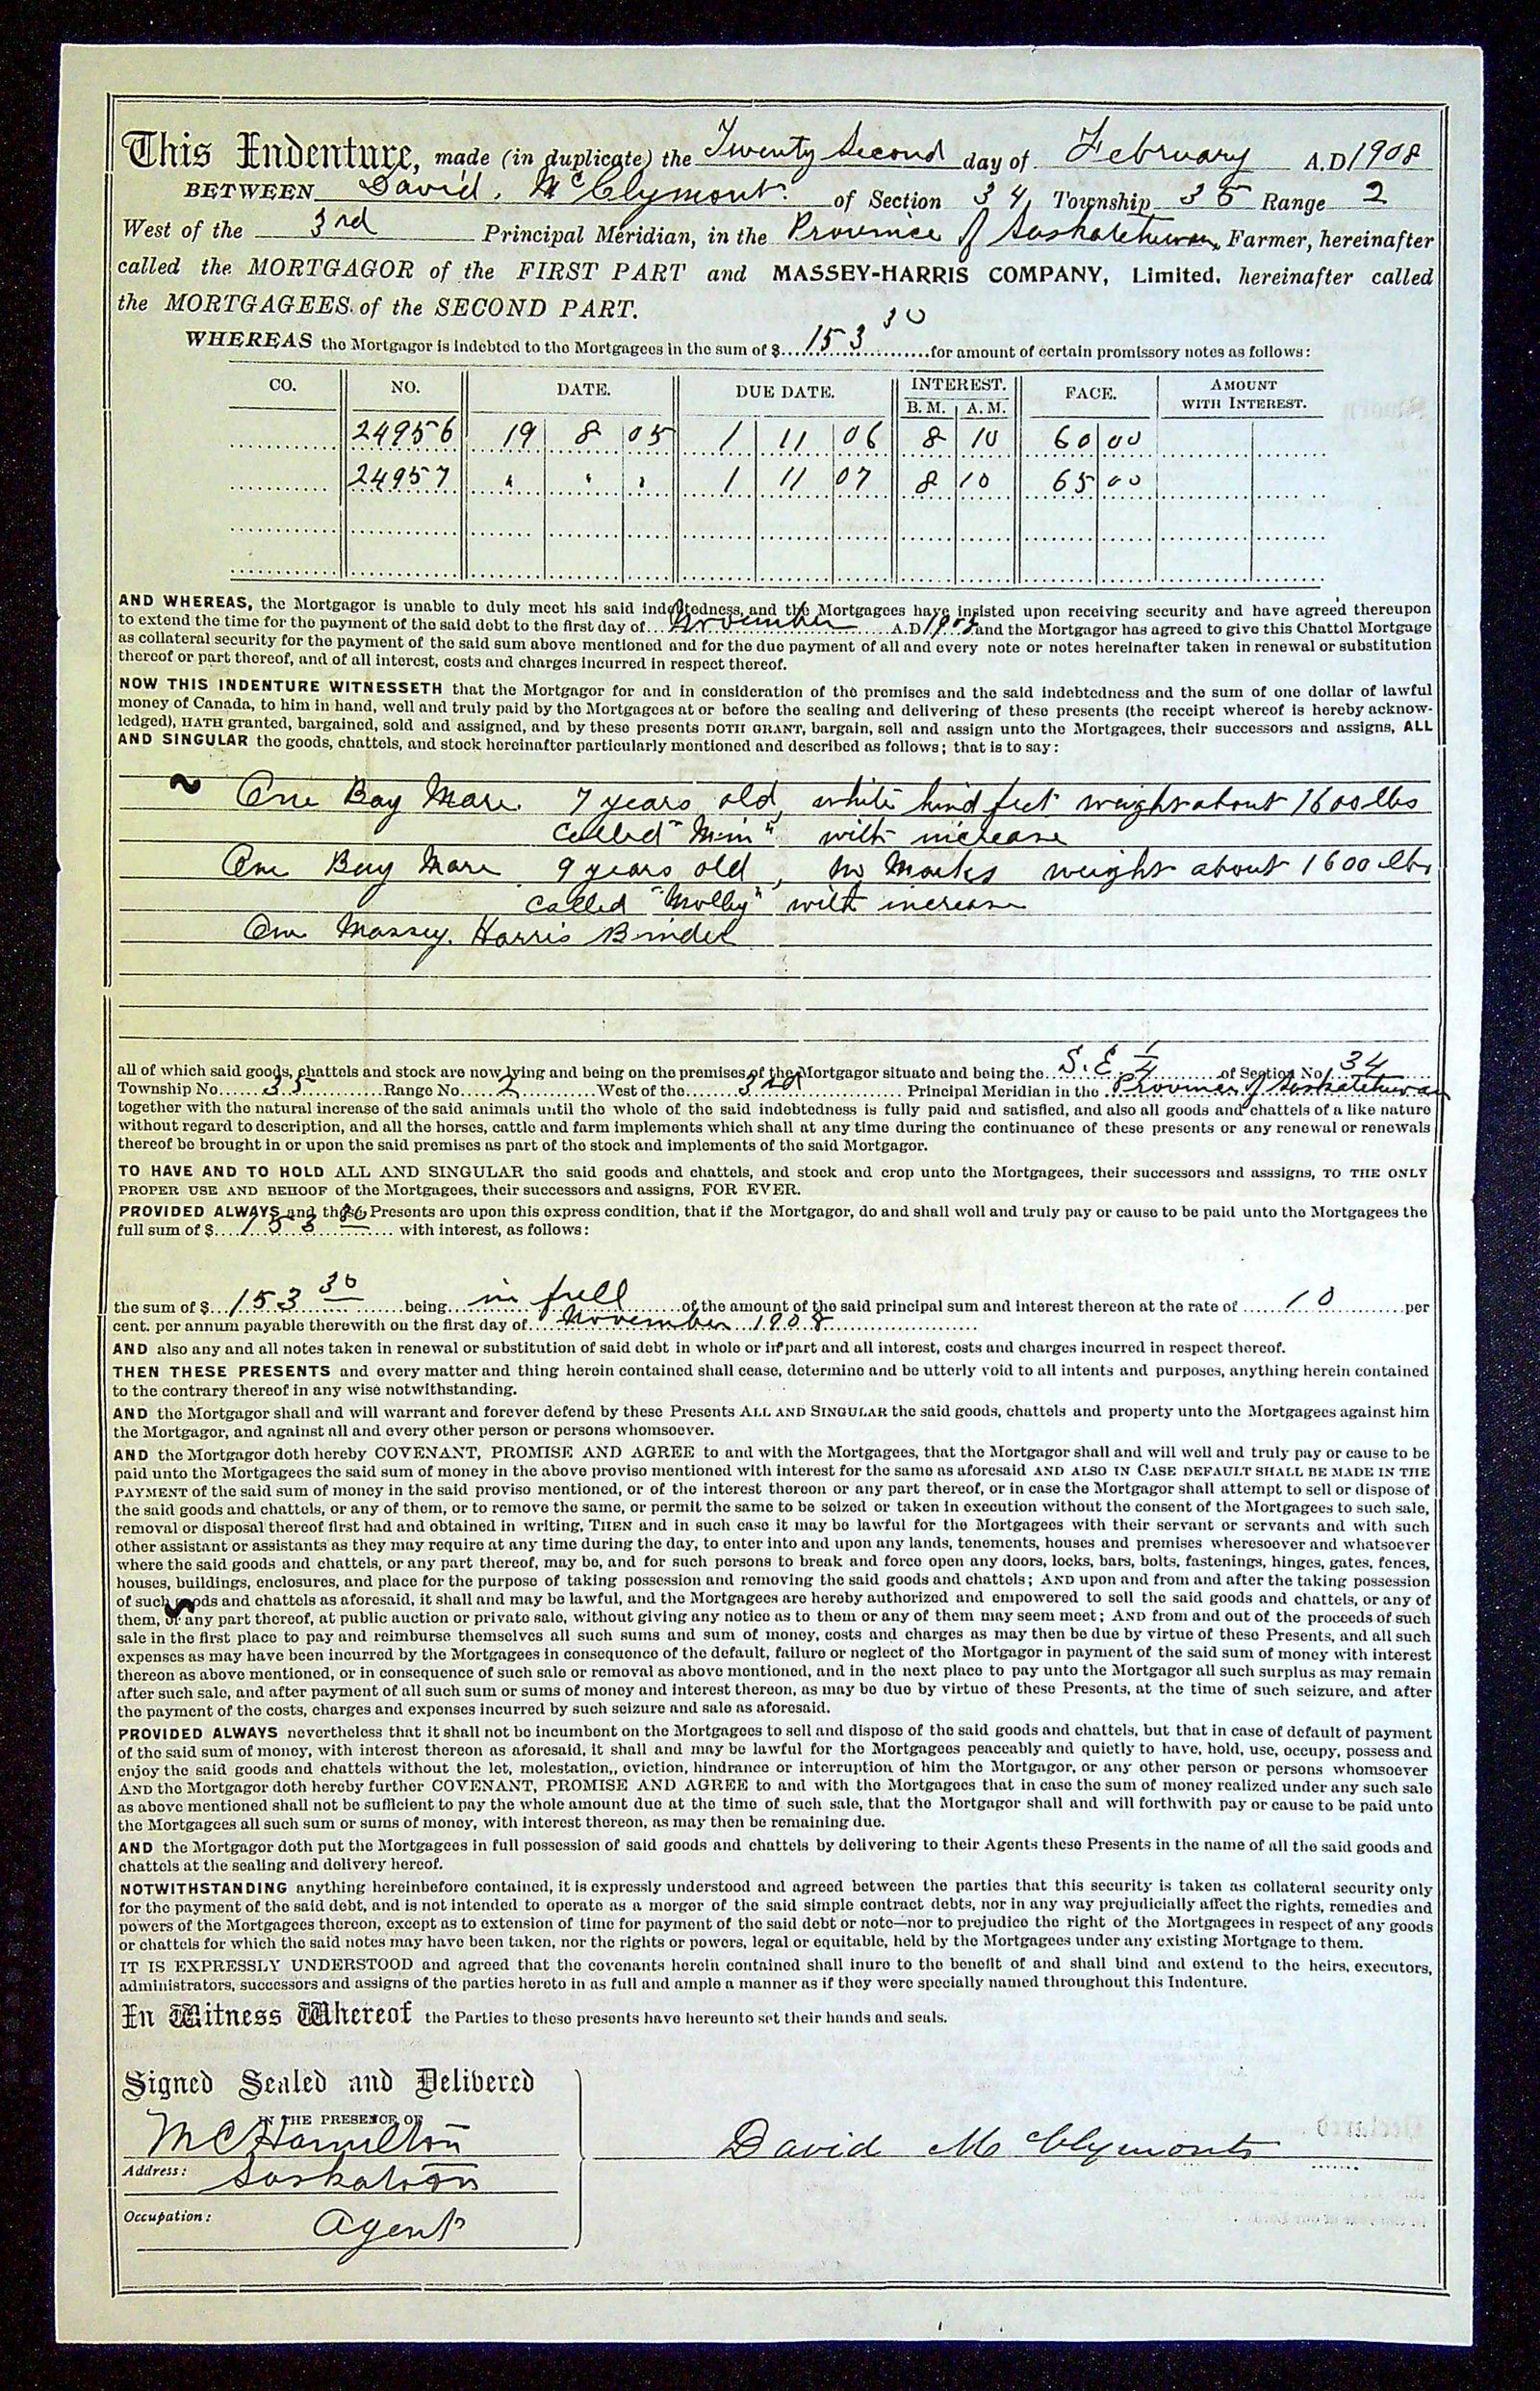 This Indenture, made (in duplicate) the Twenty Second day of February A.D 1908
BETWEEN David. McClymont. of Section 34 Township 35 Range 2
West of the 3rd Principal Meridian, in the Province of Saskatchewan, Farmer, hereinafter
called the MORTGAGOR of the FIRST PART and MASSEY-HARRIS COMPANY, Limited, hereinafter called
the MORTGAGEES of the SECOND PART.
WHEREAS the Mortgagor is indebted to the Mortgagees in the sum of $ 153 30 for amount of certain promissory notes as follows:
CO. NO. DATE. DUE DATE. INTEREST. FACE. AMOUNT WITH INTEREST.
B. M. A. M.
24956 19 8 05 1 11 06 8 10 60 00
24957 " " " 1 11 07 8 10 65 00
AND WHEREAS, the Mortgagor is unable to duly meet his said indebtedness, and the Mortgagees have insisted upon receiving security and have agreed thereupon
to extend the time for the payment of the said debt to the first day of November A.D 1908 and the Mortgagor has agreed to give this Chattel Mortgage
as collateral security for the payment of the said sum above mentioned and for the due payment of all and every note or notes hereinafter taken in renewal or substitution
thereof or part thereof, and of all interest, costs and charges incurred in respect thereof.
NOW THIS INDENTURE WITNESSETH that the Mortgagor for and in consideration of the premises and the said indebtedness and the sum of one dollar of lawful
money of Canada, to him in hand, well and truly paid by the Mortgagees at or before the sealing and delivering of these presents (the receipt whereof is hereby acknow-
ledged), HATH granted, bargained, sold and assigned, and by these presents DOTH GRANT, bargain, sell and assign unto the Mortgagees, their successors and assigns, ALL
AND SINGULAR the goods, chattels, and stock hereinafter particularly mentioned and described as follows; that is to say:
One Bay Mare. 7 years old, white hind feet weight about 1600 lbs
called "Min" with increase
One Bay Mare 9 years old, no marks weight about 1600 lbs
called "Molly" with increase
One Massey. Harris Binder
all of which said goods, chattels and stock are now lying and being on the premises of the Mortgagor situate and being the S. E 1/4 of Section No 34
Township No 35 Range No 2 West of the 3rd Principal Meridian in the Province of Saskatchewan
together with the natural increase of the said animals until the whole of the said indebtedness is fully paid and satisfied, and also all goods and chattels of a like nature
without regard to description, and all the horses, cattle and farm implements which shall at any time during the continuance of these presents or any renewal or renewals
thereof be brought in or upon the said premises as part of the stock and implements of the said Mortgagor.
TO HAVE AND TO HOLD ALL AND SINGULAR the said goods and chattels, and stock and crop unto the Mortgagees, their successors and asssigns, TO THE ONLY
PROPER USE AND BEHOOF of the Mortgagees, their successors and assigns, FOR EVER.
PROVIDED ALWAYS and these Presents are upon this express condition, that if the Mortgagor, do and shall well and truly pay or cause to be paid unto the Mortgagees the
full sum of $ 153 30 with interest, as follows:
the sum of $ 153 30 being in full of the amount of the said principal sum and interest thereon at the rate of 10 per
cent. per annum payable therewith on the first day of November 1908
AND also any and all notes taken in renewal or substitution of said debt in whole or in part and all interest, costs and charges incurred in respect thereof.
THEN THESE PRESENTS and every matter and thing herein contained shall cease, determine and be utterly void to all intents and purposes, anything herein contained
to the contrary thereof in any wise notwithstanding.
AND the Mortgagor shall and will warrant and forever defend by these Presents ALL AND SINGULAR the said goods, chattels and property unto the Mortgagees against him
the Mortgagor, and against all and every other person or persons whomsoever.
AND the Mortgagor doth hereby COVENANT, PROMISE AND AGREE to and with the Mortgagees, that the Mortgagor shall and will well and truly pay or cause to be
paid unto the Mortgagees the said sum of money in the above proviso mentioned with interest for the same as aforesaid AND ALSO IN CASE DEFAULT SHALL BE MADE IN THE
PAYMENT of the said sum of money in the said proviso mentioned, or of the interest thereon or any part thereof, or in case the Mortgagor shall attempt to sell or dispose of
the said goods and chattels, or any of them, or to remove the same, or permit the same to be seized or taken in execution without the consent of the Mortgagees to such sale,
removal or disposal thereof first had and obtained in writing, THEN and in such case it may be lawful for the Mortgagees with their servant or servants and with such
other assistant or assistants as they may require at any time during the day, to enter into and upon any lands, tenements, houses and premises wheresoever and whatsoever
where the said goods and chattels, or any part thereof, may be, and for such persons to break and force open any doors, locks, bars, bolts, fastenings, hinges, gates, fences,
houses, buildings, enclosures, and place for the purpose of taking possession and removing the said goods and chattels; AND upon and from and after the taking possession
of such goods and chattels as aforesaid, it shall and may be lawful, and the Mortgagees are hereby authorized and empowered to sell the said goods and chattels, or any of
them, or any part thereof, at public auction or private sale, without giving any notice as to them or any of them may seem meet; AND from and out of the proceeds of such
sale in the first place to pay and reimburse themselves all such sums and sum of money, costs and charges as may then be due by virtue of these Presents, and all such
expenses as may have been incurred by the Mortgagees in consequence of the default, failure or neglect of the Mortgagor in payment of the said sum of money with interest
thereon as above mentioned, or in consequence of such sale or removal as above mentioned, and in the next place to pay unto the Mortgagor all such surplus as may remain
after such sale, and after payment of all such sum or sums of money and interest thereon, as may be due by virtue of these Presents, at the time of such seizure, and after
the payment of the costs, charges and expenses incurred by such seizure and sale as aforesaid.
PROVIDED ALWAYS nevertheless that it shall not be incumbent on the Mortgagees to sell and dispose of the said goods and chattels, but that in case of default of payment
of the said sum of money, with interest thereon as aforesaid, it shall and may be lawful for the Mortgagees peaceably and quietly to have, hold, use, occupy, possess and
enjoy the said goods and chattels without the let, molestation,, eviction, hindrance or interruption of him the Mortgagor, or any other person or persons whomsoever
AND the Mortgagor doth hereby further COVENANT, PROMISE AND AGREE to and with the Mortgagees that in case the sum of money realized under any such sale
as above mentioned shall not be sufficient to pay the whole amount due at the time of such sale, that the Mortgagor shall and will forthwith pay or cause to be paid unto
the Mortgagees all such sum or sums of money, with interest thereon, as may then be remaining due.
AND the Mortgagor doth put the Mortgagees in full possession of said goods and chattels by delivering to their Agents these Presents in the name of all the said goods and
chattels at the sealing and delivery hereof.
NOTWITHSTANDING anything hereinbefore contained, it is expressly understood and agreed between the parties that this security is taken as collateral security only
for the payment of the said debt, and is not intended to operate as a merger of the said simple contract debts, nor in any way prejudicially affect the rights, remedies and
powers of the Mortgagees thereon, except as to extension of time for payment of the said debt or note—nor to prejudice the right of the Mortgagees in respect of any goods
or chattels for which the said notes may have been taken, nor the rights or powers, legal or equitable, held by the Mortgagees under any existing Mortgage to them.
IT IS EXPRESSLY UNDERSTOOD and agreed that the covenants herein contained shall inure to the benefit of and shall bind and extend to the heirs, executors,
administrators, successors and assigns of the parties hereto in as full and ample a manner as if they were specially named throughout this Indenture.
In Witness Whereof the Parties to these presents have hereunto set their hands and seals.
Signed Sealed and Delivered
IN THE PRESENCE OF
M C Hamilton
David McClymont
Address: Saskatoon
Occupation: Agent